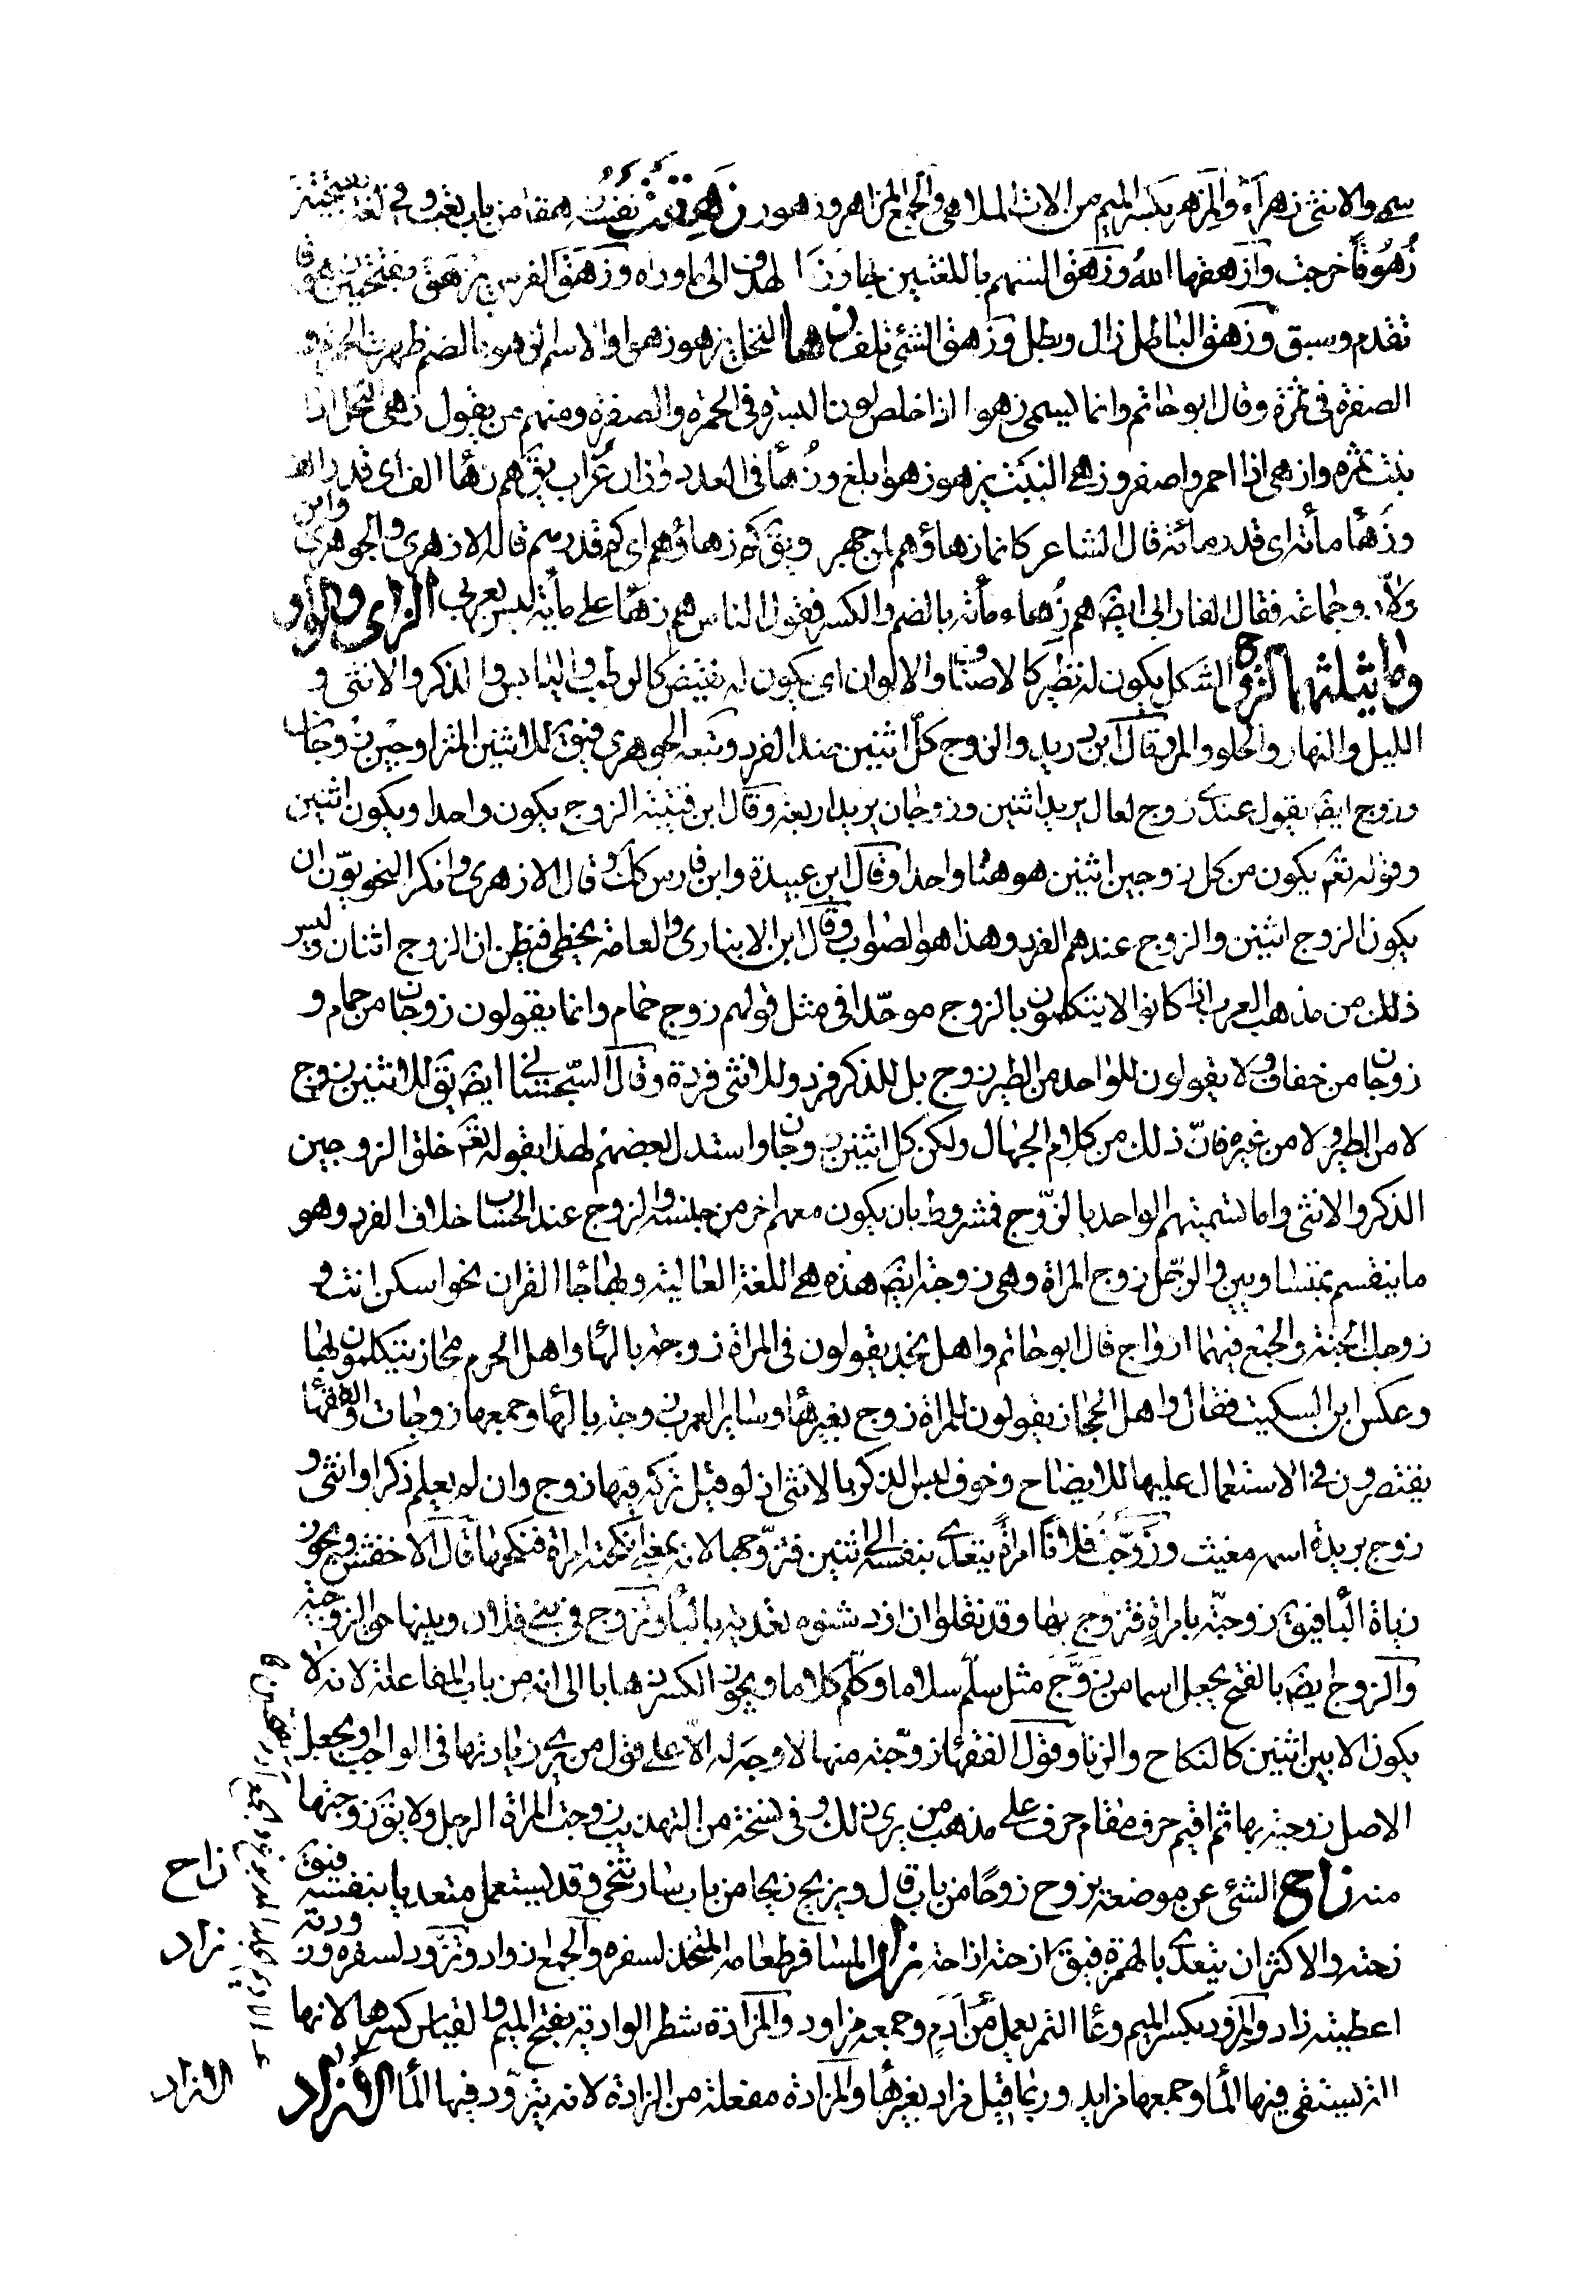 سمي والانثى زهرآء والمزهر بكسر الميم من الات الملاهي والجمع المزاهر وزهور زهقت نفسه زهقا من باب تعب وفي لغة بفتحتين
زُهُوقاً خرجت وازهقها الله وزهق السهم باللغتين جاوز الهدف الى ماوراه وزهق الفرس يزهق بفتحتين زهوقا
تقدم وسبق وزهق الباطل زال وبطل وزهق الشئ تلف زها النخل يزهو زهوا والاسم الزهو بالضم ظهرت الحمرة و
الصفرة فى ثمرة وقال ابو حاتم وانما يسمى زهوا اذا خلص لون البسرة فى الحمرة والصفرة ومنهم من يقول زهى النخل اذا
نبت ثمره وازهى اذا احمر واصفر وزهى النبت يزهو زهوا بلغ وزُهاً فى العدد وزان غُراب يقَ هم زُهأ الف اى قدر الف
وزهأ مأته اى قدر مائة قال الشاعر كانما زهاؤهم لمن جهر ويقَ كم زهاؤهم اى كم قدرهم قاله الازهرى والجوهرى وابن
ولاّد وجماعة فقال الفارابى ايضَ هم زُهاء مأته بالضم والكسر فقول الناس هم زهأ على مأية ليس بعربى الزاى والواو
وما يثلثهما الزوج الشكل يكون له نظير كالاصناف والالوان اى يكون له نقيض كالرطب واليابس والذكر والانثى و
الليل والنهار والحلو والمر قال ابن دريد والزوج كلّ اثنين ضد الفرد وتبعه الجوهرى فيق للاثنين المتزاوجين زوجان
وزوج ايضَ يقول عندى زوج نعال يريد اثنين وزوجان يريد اربعة وقال ابن قتيبة الزوج يكون واحدا ويكون اثنين
وقوله تعَم يكون من كل زوجين اثنين هو هنا واحد وقال ابن عبيدة وابن فارس كك وقال الازهرى وانكر النحويّون ان
يكون الزوج اثنين والزوج عندهم الفرد وهذا هو الصواب وقال ابن الابنارى والعامة يخطى فيظن ان الزوج اثنان وليس
ذلك من مذهب العرب اذ كانوا لا يتكلمون بالزوج موحّدا فى مثل قولهم زوج حمام وانما يقولون زوجان من حمام و
زوجان من خفاف ولا يقولون للواحد من الطير زوج بل للذكر فرد وللانثى فردة وقال السّجستانى ايضَ لا يق للاثنين زوج
لا من الطير ولا من غيره فانّ ذلك من كلام الجهال ولكن كل اثنين زوجان واستدل بعضهم لهذا بقوله تعَم خلق الزوجين
الذكر والانثى واما تسميتهم الواحد بالزّوج فمشروط بان يكون معه اخر من جنسه والزوج عند الحساب خلاف الفرد وهو
ما ينقسم بمتساويين والرجل زوج المراة وهى زوجته ايضَ هذه هى اللغة العالية وبها جاأ القران نحو اسكن انت و
زوجك الجنة والجمع فيهما ازواج قال ابو حاتم واهل نجد يقولون فى المراة زوجة بالهأ واهل الحرم يتكلمون بها
وعكس ابن السكيت فقال واهل الحجاز يقولون للمراة زوج بغير هأ وساير العرب زوجة بالهأ وجمعها زوجات والفقهأ
يقتصرون فى الاستعمال عليها للايضاح وخوف لبس الذكر بالانثى اذ لو قيل تركة فيها زوج وان لم يعلم ذكر او انثى و
زوج بريدة اسمه مغيث وزوّجت فلاناً امراةً يتعدى بنفسه الى اثنين فتزوّجها لانه بمعنى انكحته امراة فنكحها قال الاخفش ويجوز
زياة البأ فيق زوجته بامراةٍ فتزوج بها وقد نقلوا ان ازد شنوه تعديه بالبأ وتزوج فى بنى فلان وبينهما حق الزوجيّة
والزواج ايضَ بالفتح يجعل اسما من زوَّجَ مثل سلّم سلاما وكلّم كلاما ويجوز الكسر ذهابا الى انه من باب المفاعلة لانه لا
يكون الا بين اثنين كالنكاح والزنا وقول الفقهأ زوّجته منها لا وجه له الاّ على قول من يرى زيادتها فى الواجب ويجعل
الاصل زوجته بها ثم اقيم حرف مقام حرف على مذهب من يرى ذلك وفى نسخة من التهذيب زوجت المراة الرجل ولا يقَ زوجتها
منه زاح الشئ عن موضعه يزوح زوحًا من باب قال ويزيح زيحا من باب سار تنحى وقد يستعمل متعديا بنفسه فيق
زحته والاكثر ان يتعدى بالهمزة فيق ازحته ازاحة زاد المسافر طعامه المتخذ لسفره والجمع ازواد وتزّود لسفره وزودته
اعطيته زاد والمزود بكسر الميم وعاأ التمر يعمل من اَدَمٍ وجمعه مزاود والمزادة شطر الراوية بفتح الميم والقياس كسرها لانها
الة يستقى فيها المأ وجمعها مزايد وربما قيل مزاد بغير هأ والمزادة مفعلة من الزادة لانه يتزوّد فيها المأ الازاد
زاح
زاد
الازاد